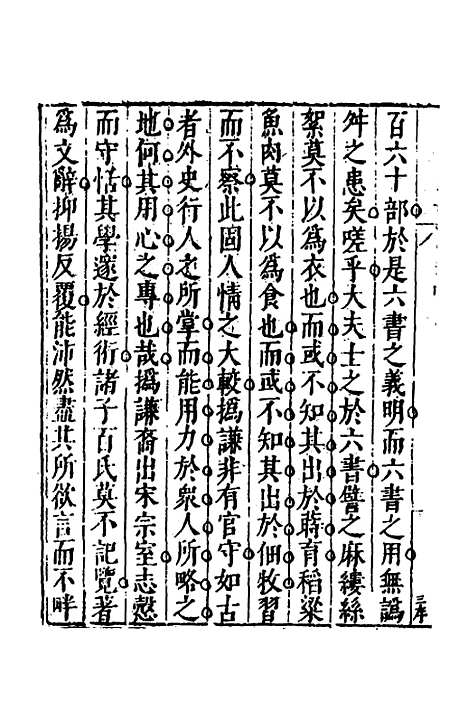 百六十部於是六書之義明而六書之用無譌
舛之患矣嗟乎大夫士之於六書譬之麻縷絲
絮莫不以爲衣也而或不知其出於蒔育稻粱
魚肉莫不以爲食也而或不知其出於佃牧習
而不察此固人情之大較撝謙非有官守如古
者外史行人之所掌而能用力於衆人所略之
地何其用心之專也哉撝謙裔出宋宗室志慤
而守恬其學邃於經術諸子百氏莫不記覽著
爲文辭抑揚反覆能沛然盡其所欲言而不畔